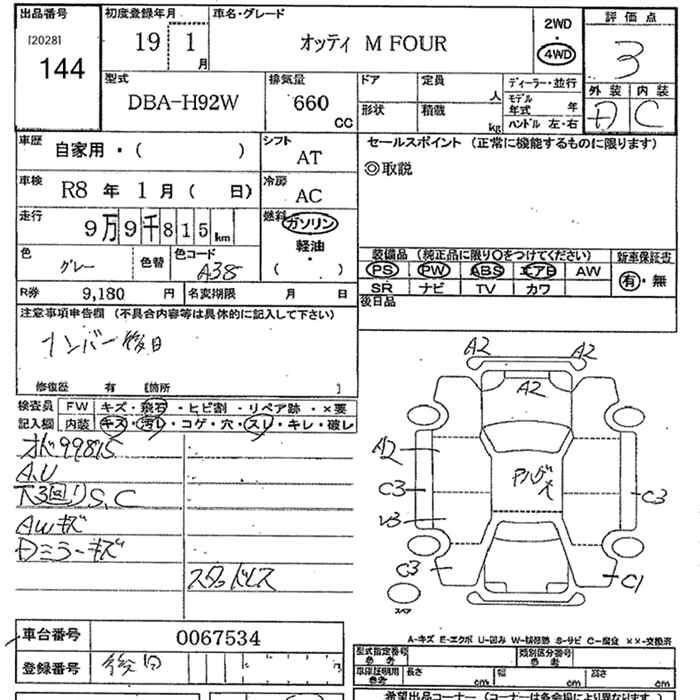 出品番号
[2028]
144
初度登録年月
19 1 月
車名・グレード
オッティ M FOUR
2WD
・
4WD
評価点
3
外装 内装
D C
型式
DBA-H92W
排気量
660 CC
ドア
定員 人
形状
積載 kg
ディーラー・並行
モデル年式 年
ハンドル 左・右
車歴
自家用・( )
シフト
AT
セールスポイント (正常に機能するものに限ります)
◎取説
車検
R8 年 1 月 ( 日)
冷房
AC
走行
9万9千815km
燃料
ガソリン
軽油
・
( )
色
グレー
色替
色コード
A38
装備品 (純正品に限り○をつけてください)
PS PW ABS エアB AW
SR ナビ TV カワ
新車保証書
有・無
R券 9,180 円
名変期限 月 日
後日品
注意事項申告欄 (不具合内容等は具体的に記入して下さい)
ナンバー後日
修復歴 有 [箇所 ]
検査員 FW キズ・飛石・ヒビ割・リペア跡・×要
記入欄 内装 キズ・汚レ・コゲ・穴・スレ・キレ・破レ
オド99815
A,U
下回りS,C
AWキズ
Dミラーキズ
スタッドレス
A2 A2
A2
A2
C3
C3
C3
C1
スペア
車台番号 0067534
登録番号 後日
A-キズ E-エクボ U-凹み W-補修跡 S-サビ C-腐食 ××-交換済
型式指定番号 参考
類別区分番号 参考
車庫証明用 参考
長さ cm
幅 cm
高さ cm
希望出品コーナー (コーナーは各会場により異なります)